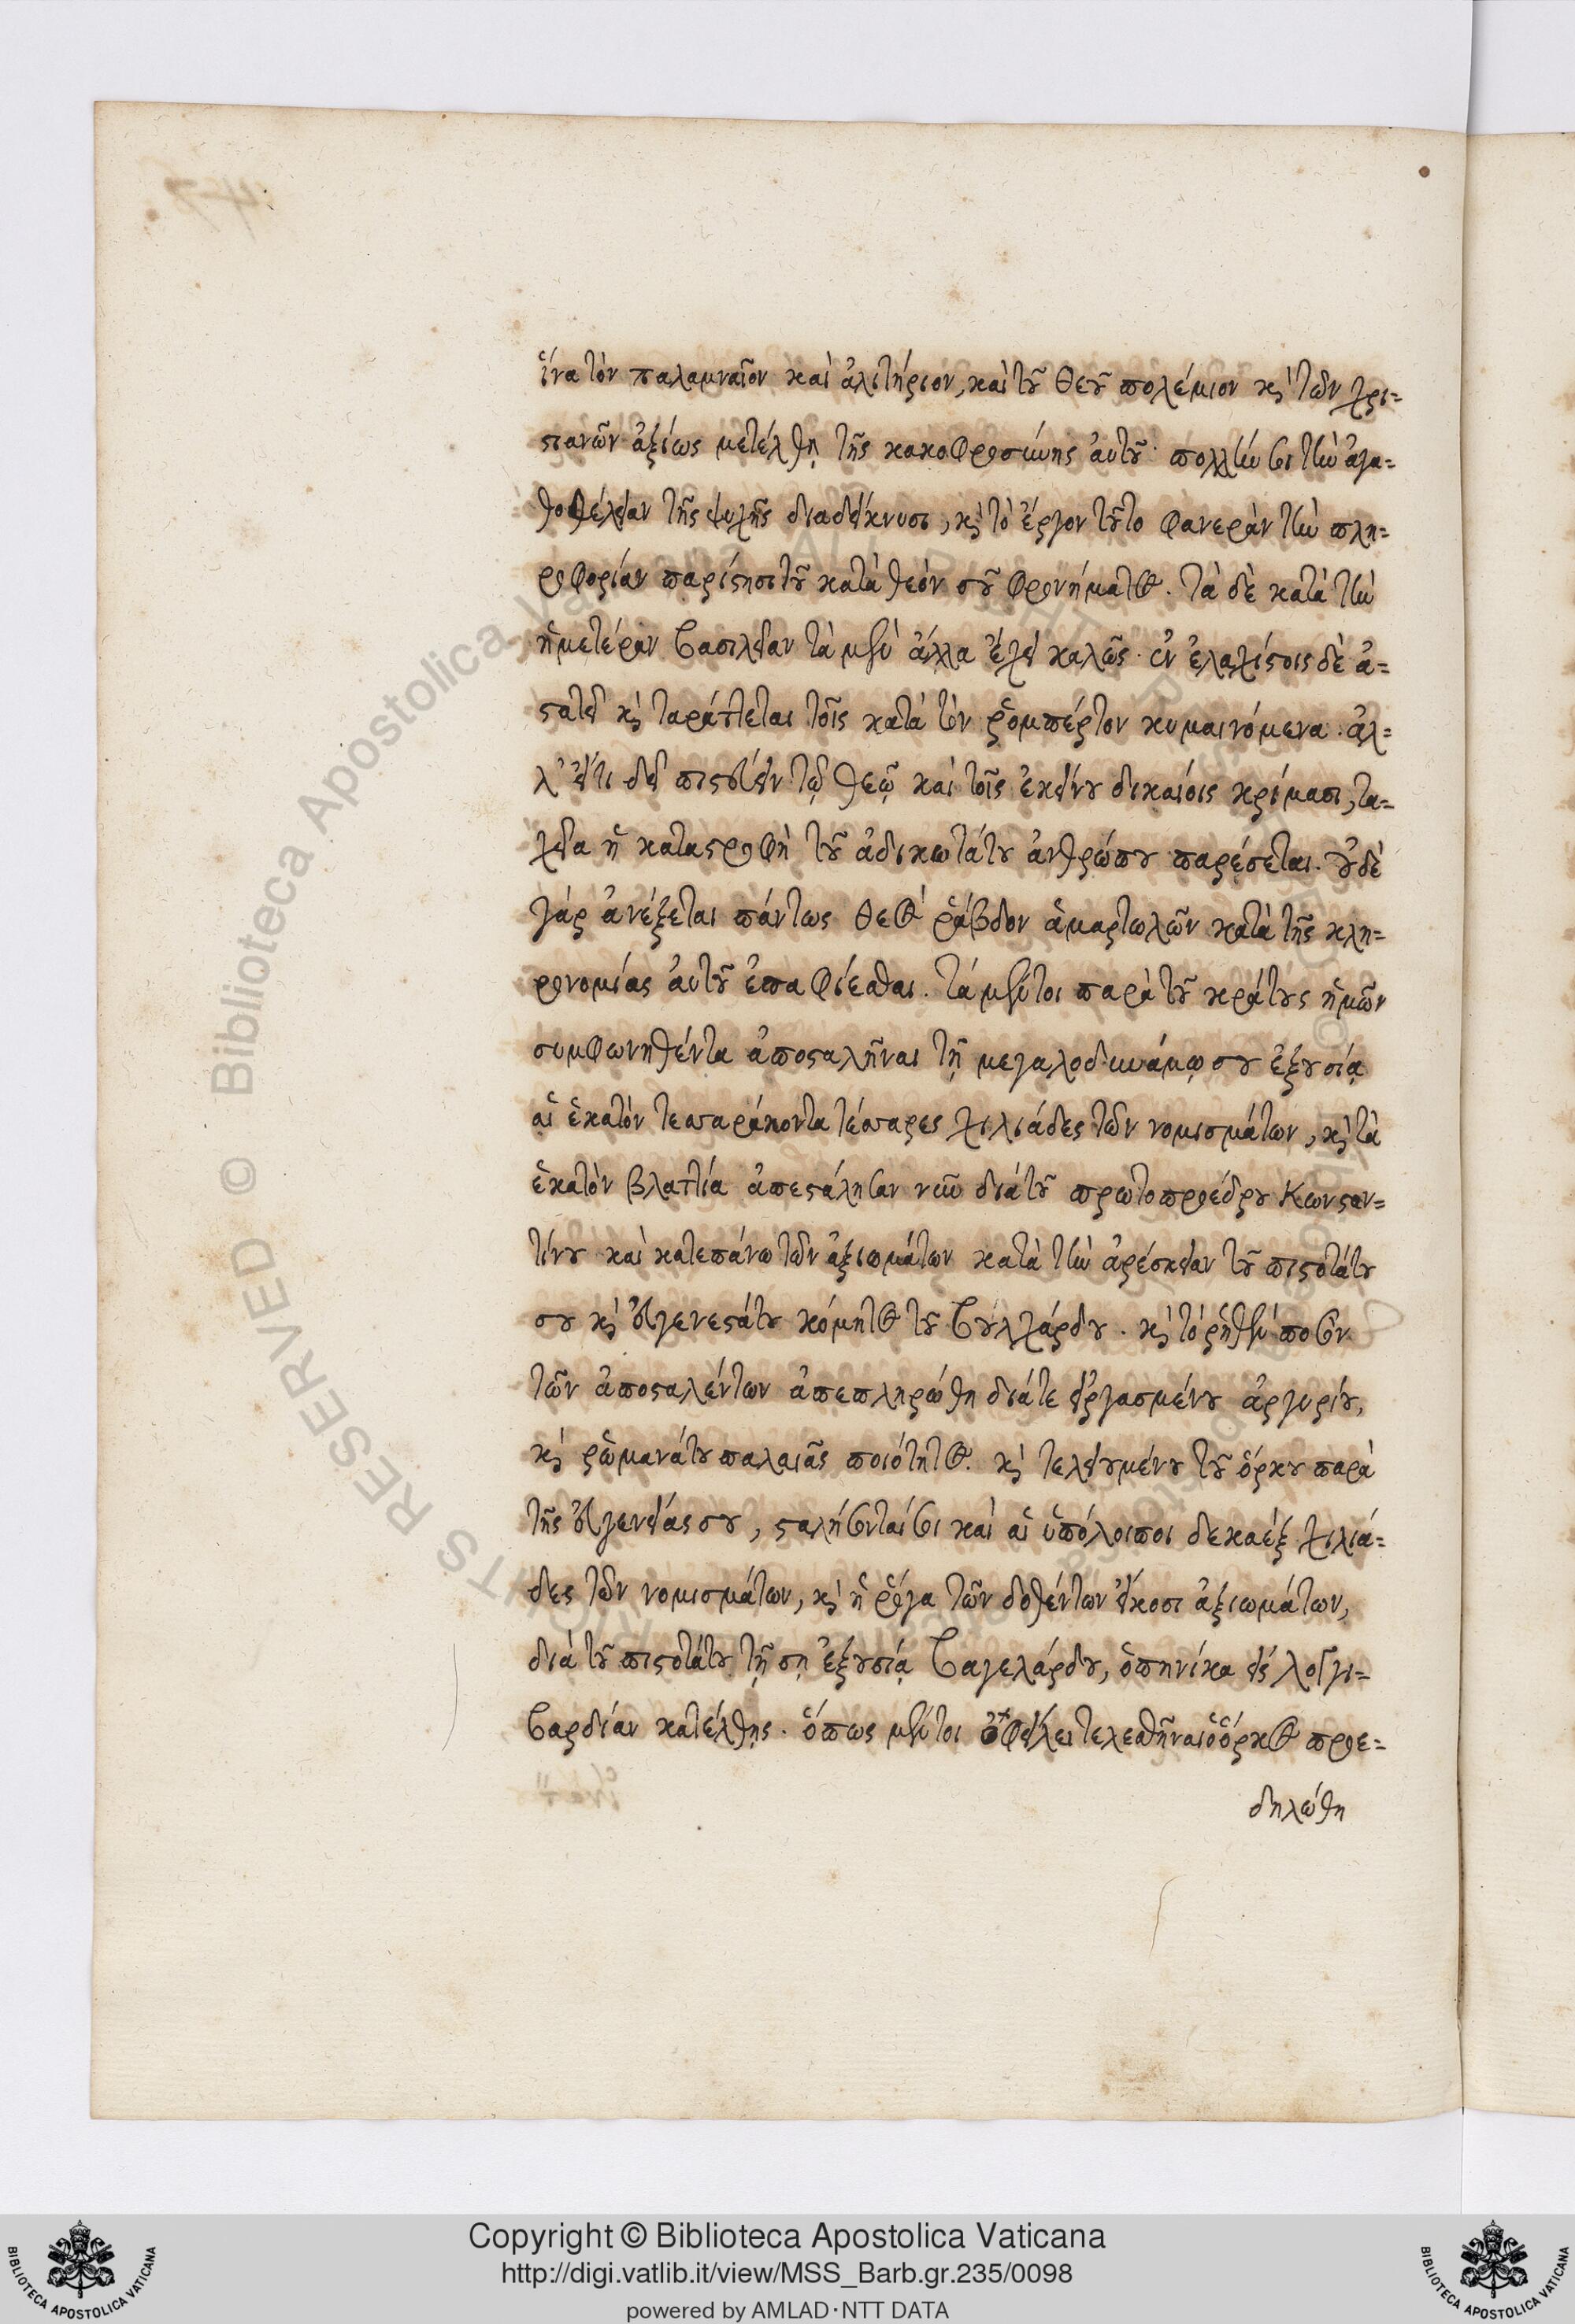 ἵνα τὸν παλαμναῖον καὶ ἀλιτήριον, καὶ τοῦ Θεοῦ πολέμιον κὶ τῶν χρι=
στιανῶν ἀξίως μετέλθῃ τῆς κακοφροσύνης ἀυτοῦ· πολλήν σοι τὴν ἀγα=
θοθέλειαν τῆς ψυχῆς διαδείκνυσι, κὶ τὸ ἔργον τοῦτο φανερὰν τὴν πλη=
ροφορίαν παρίστησι τοῦ κατὰ θεόν σοῦ φρονήματος. τὰ δὲ κατὰ τὴν
ἡμετέραν βασιλείαν τὰ μὲν ἄλλα ἔχει καλῶς· ἐν ἐλαχίστοις δὲ ἀ=
στατεῖ κὶ ταράττεται τοῖς κατὰ τὸν ῥομπέρτον κυμαινόμενα. ἀλ=
λ' εἴτι δεῖ πιστεύειν τῷ θεῷ καὶ τοῖς ἐκείνου δικαίοις κρίμασι, τα=
χεῖα ἡ καταστροφὴ τοῦ ἀδικωτάτου ἀνθρώπου παρέσεται. οὐδὲ
γάρ ἀνέξεται πάντως θεὸς ῥάβδον ἁμαρτωλῶν κατὰ τῆς κλη=
ρονομίας ἀυτοῦ ἐπαφίεσθαι. τὰ μέντοι παρὰ τοῦ κράτους ἡμῶν
συμφωνηθέντα ἀποσταλῆναι τῇ μεγαλοδυνάμῳ σου ἐξουσίᾳ
αἱ ἑκατόν τεσσαράκοντα τέσσαρες χιλιάδες τῶν νομισμάτων, κὶ τὰ
ἑκατὸν βλαττία ἀπεστάλησαν νῦν διὰ τοῦ πρωτοπροέδρου Κωνσταν=
τίνου καὶ κατεπάνω τῶν ἀξιωμάτων κατὰ τὴν ἀρέσκειαν τοῦ πιστοτάτου
σου κὶ εὐγενεστάτου κόμητος τοῦ βουλχάρδου. κὶ τὸ ῥηθὲν ποσὸν
τῶν ἀποσταλέντων ἀπεπληρώθη διάτε εἰργασμένου ἀργυρίου,
κὶ ῥωμανάτου παλαιᾶς ποιότητος. κὶ τελειουμένου τοῦ ὅρκου παρὰ
τῆς εὐγενείας σου, σταλήσονταί σοι καὶ αἱ ὑπόλοιποι δεκαέξ χιλιά=
δες τῶν νομισμάτων, κὶ ἡ ῥόγα τῶν δοθέντων εἴκοσι ἀξιωμάτων,
διὰ τοῦ πιστοτάτου τῇ σῇ ἐξουσίᾳ βαγελάρδου, ὁπηνίκα εἰς λογγι=
βαρδίαν κατέλθῃς. ὅπως μέντοι ὀφείλει τελεσθῆναι ὁ ὅρκος προε=
δηλώθη
Copyright © Biblioteca Apostolica Vaticana
http://digi.vatlib.it/view/MSS_Barb.gr.235/0098
powered by AMLAD·NTT DATA